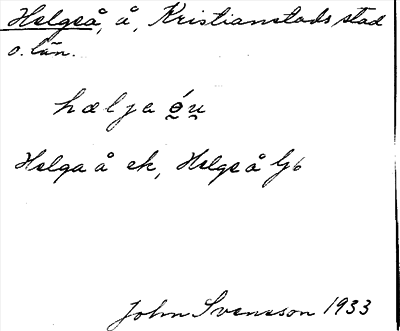 Helgeå, å, Kristianstads stad
o. län.
hælja ó̯u̯
Helga å ek, Helge å Gjb
John Svensson 1933